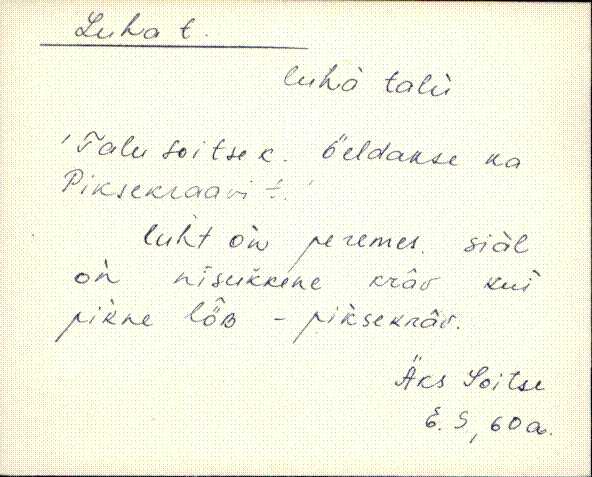 Luha t.
luhà talù
'Talu Soitse k. Öeldakse ka
Piksekraavi t.'
luht òn peremes. siàl
òn nisukkene krâv kui
pikne lö̂в - piksekrâv.
Äks Soitse
E. S, 60 a.